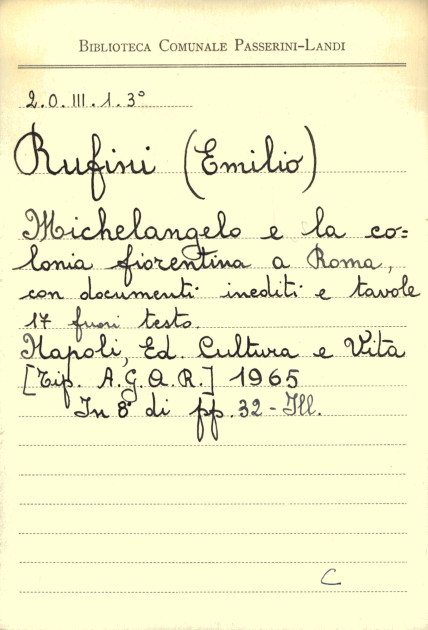 BIBLIOTECA COMUNALE PASSERINI-LANDI
2.O.III.1.3°
Rufini (Emilio)
Michelangelo e la co=
lonia fiorentina a Roma,
con documenti inediti e tavole
17 fuori testo.
Napoli, Ed. Cultura e Vita
[Tip. A.G.A.R.] 1965
In 8° di pp. 32 - Ill.
C